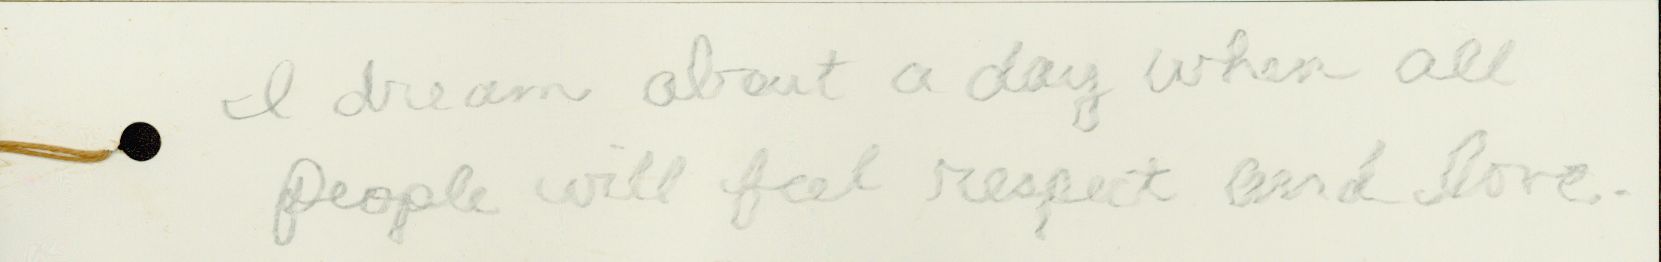 I dream about a day when all
people will feel respect and love.